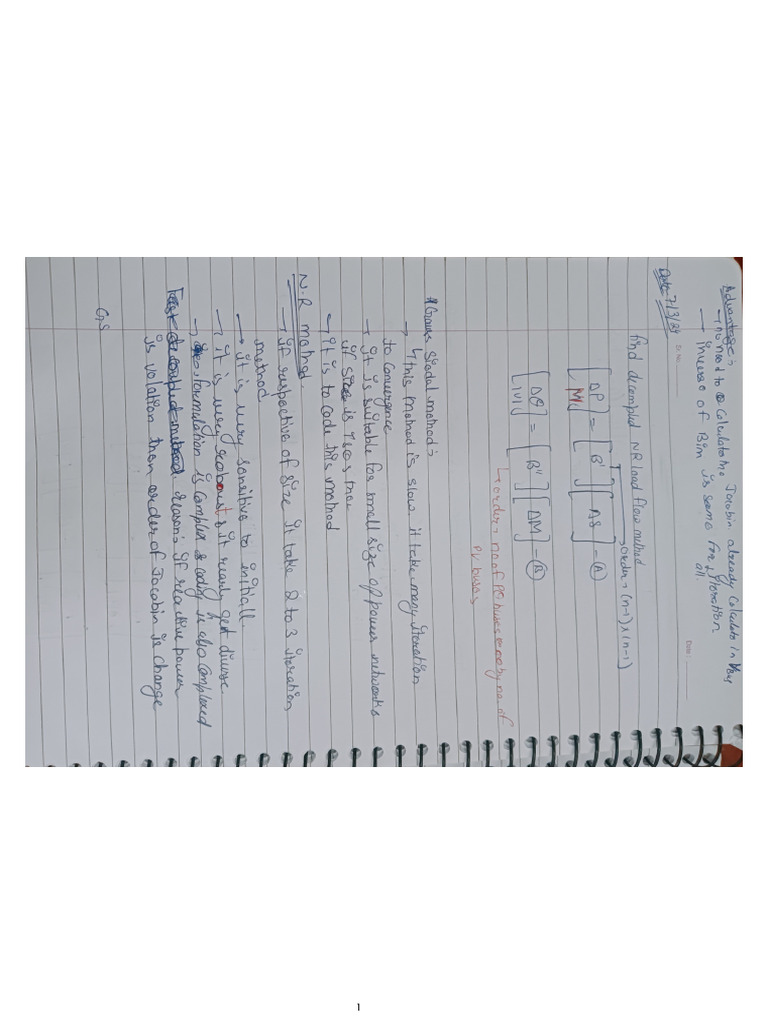 Advantage:
→ no need to calculate the Jacobin already calculate in Ybus
→ Inverse of Bim is same for iteration
all.
Date: 7/3/24
Date:
find decoupled NR load flow method
→ order, (n-1) x (n-1)
[ΔP / |V|] = [B'] [Δδ] - (A)
[ΔQ / |V|] = [B''] [ΔM] - (B)
↳ order, no of PQ buses by no of
PV buses
# Gauss Siadal method:
→ this method is slow. it take many iteration
to convergence
→ it is suitable for small size of power networks
if is the
→ it is to code this method
N.R method
→ if respective of size it take 2 to 3 iteration
method
→ it is very sensitive to initiall
→ it is very roboust & it rearly get divirse
→ formulation is complex & coding is also complexed
reason: if reactive power
is volation then order of Jacobin is change
G.S
1